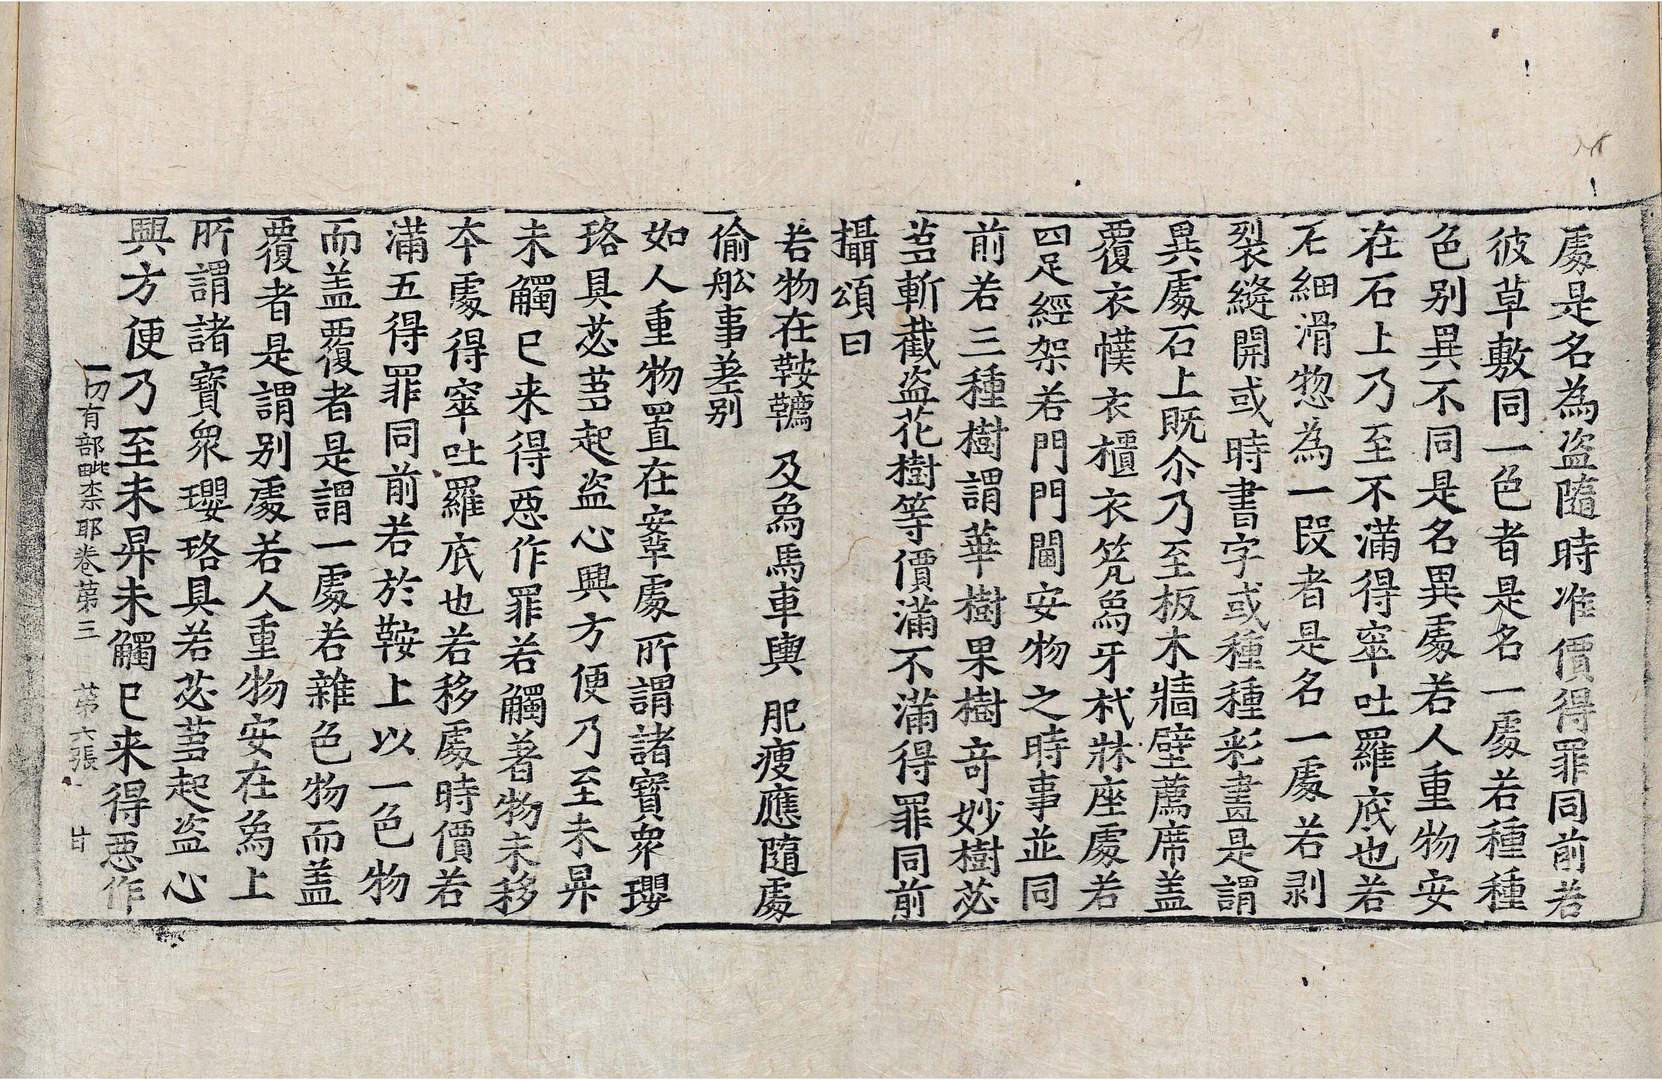 處是名為盜隨時准價得罪同前若
彼草敷同一色者是名一處若種種
色別異不同是名異處若人重物安
在石上乃至不滿得窣吐羅底也若
石細滑惣為一段者是名一處若剥
裂縫開或時書字或種種彩畫是謂
異處石上既尒乃至板木牆壁薦席盖
覆衣幞衣櫃衣笐象牙杙牀座處若
四足經架若門門閫安物之時事並同
前若三種樹謂華樹果樹奇妙樹苾
蒭斬截盜花樹等價滿不滿得罪同前
攝頌曰
若物在鞍韉 及象馬車輿 肥瘦應隨處
偷舩事差別
如人重物置在安韋處所謂諸寶衆瓔
珞具苾蒭起盜心興方便乃至未舉
未觸已来得惡作罪若觸著物未移
本處得窣吐羅底也若移處時價若
滿五得罪同前若於鞍上以一色物
而盖覆者是謂一處若雜色物而盖
覆者是謂別處若人重物安在象上
所謂諸寶衆瓔珞具若苾蒭起盜心
興方便乃至未舉未觸已来得惡作
一切有部毗柰耶卷第三 第六張 甘